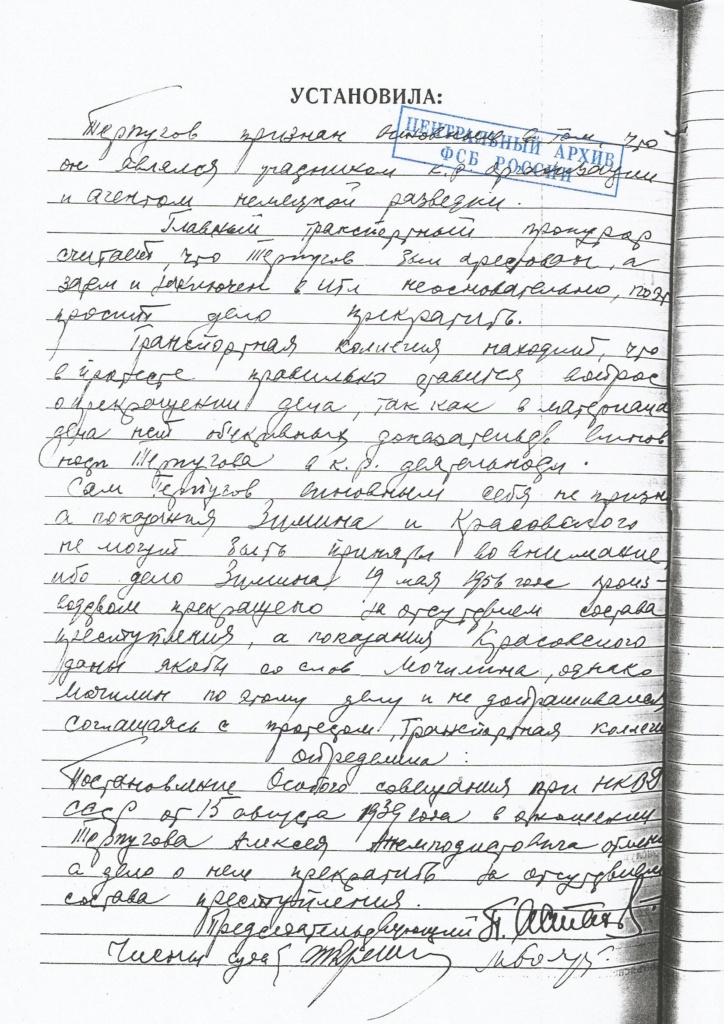 УСТАНОВИЛА:
ЦЕНТРАЛЬНЫЙ АРХИВ
ФСБ РОССИИ
Терпугов признан виновным в том, что
он являлся участником к.р. организации
и агентом немецкой разведки.
Главный транспортный прокурор
считает, что Терпугов был арестован, а
затем и заключен в ИТЛ неосновательно, поэт
просит дело прекратить.
Транспортная коллегия находит, что
в протесте правильно ставится вопрос
о прекращении дела, так как в материала
дела нет объективных доказательств винов
ности Терпугова в к.р. деятельности.
Сам Терпугов виновным себя не призн
а показания Зимина и Красовского
не могут быть приняты во внимание,
ибо дело Зимина 19 мая 1956 года произ-
водством прекращено за отсутствием состава
преступления, а показания Красовского
даны якобы со слов Мочилина, однако
Мочилин по этому делу и не допрашивался
соглашаясь с протестом, Транспортная коллеги
определила:
Постановление Особого совещания при НКВД
СССР от 15 августа 1939 года в отношении
Терпугова Алексея отмени
а дело о нем прекратить за отсутствием
состава преступления.
Председательствующий
Члены суда